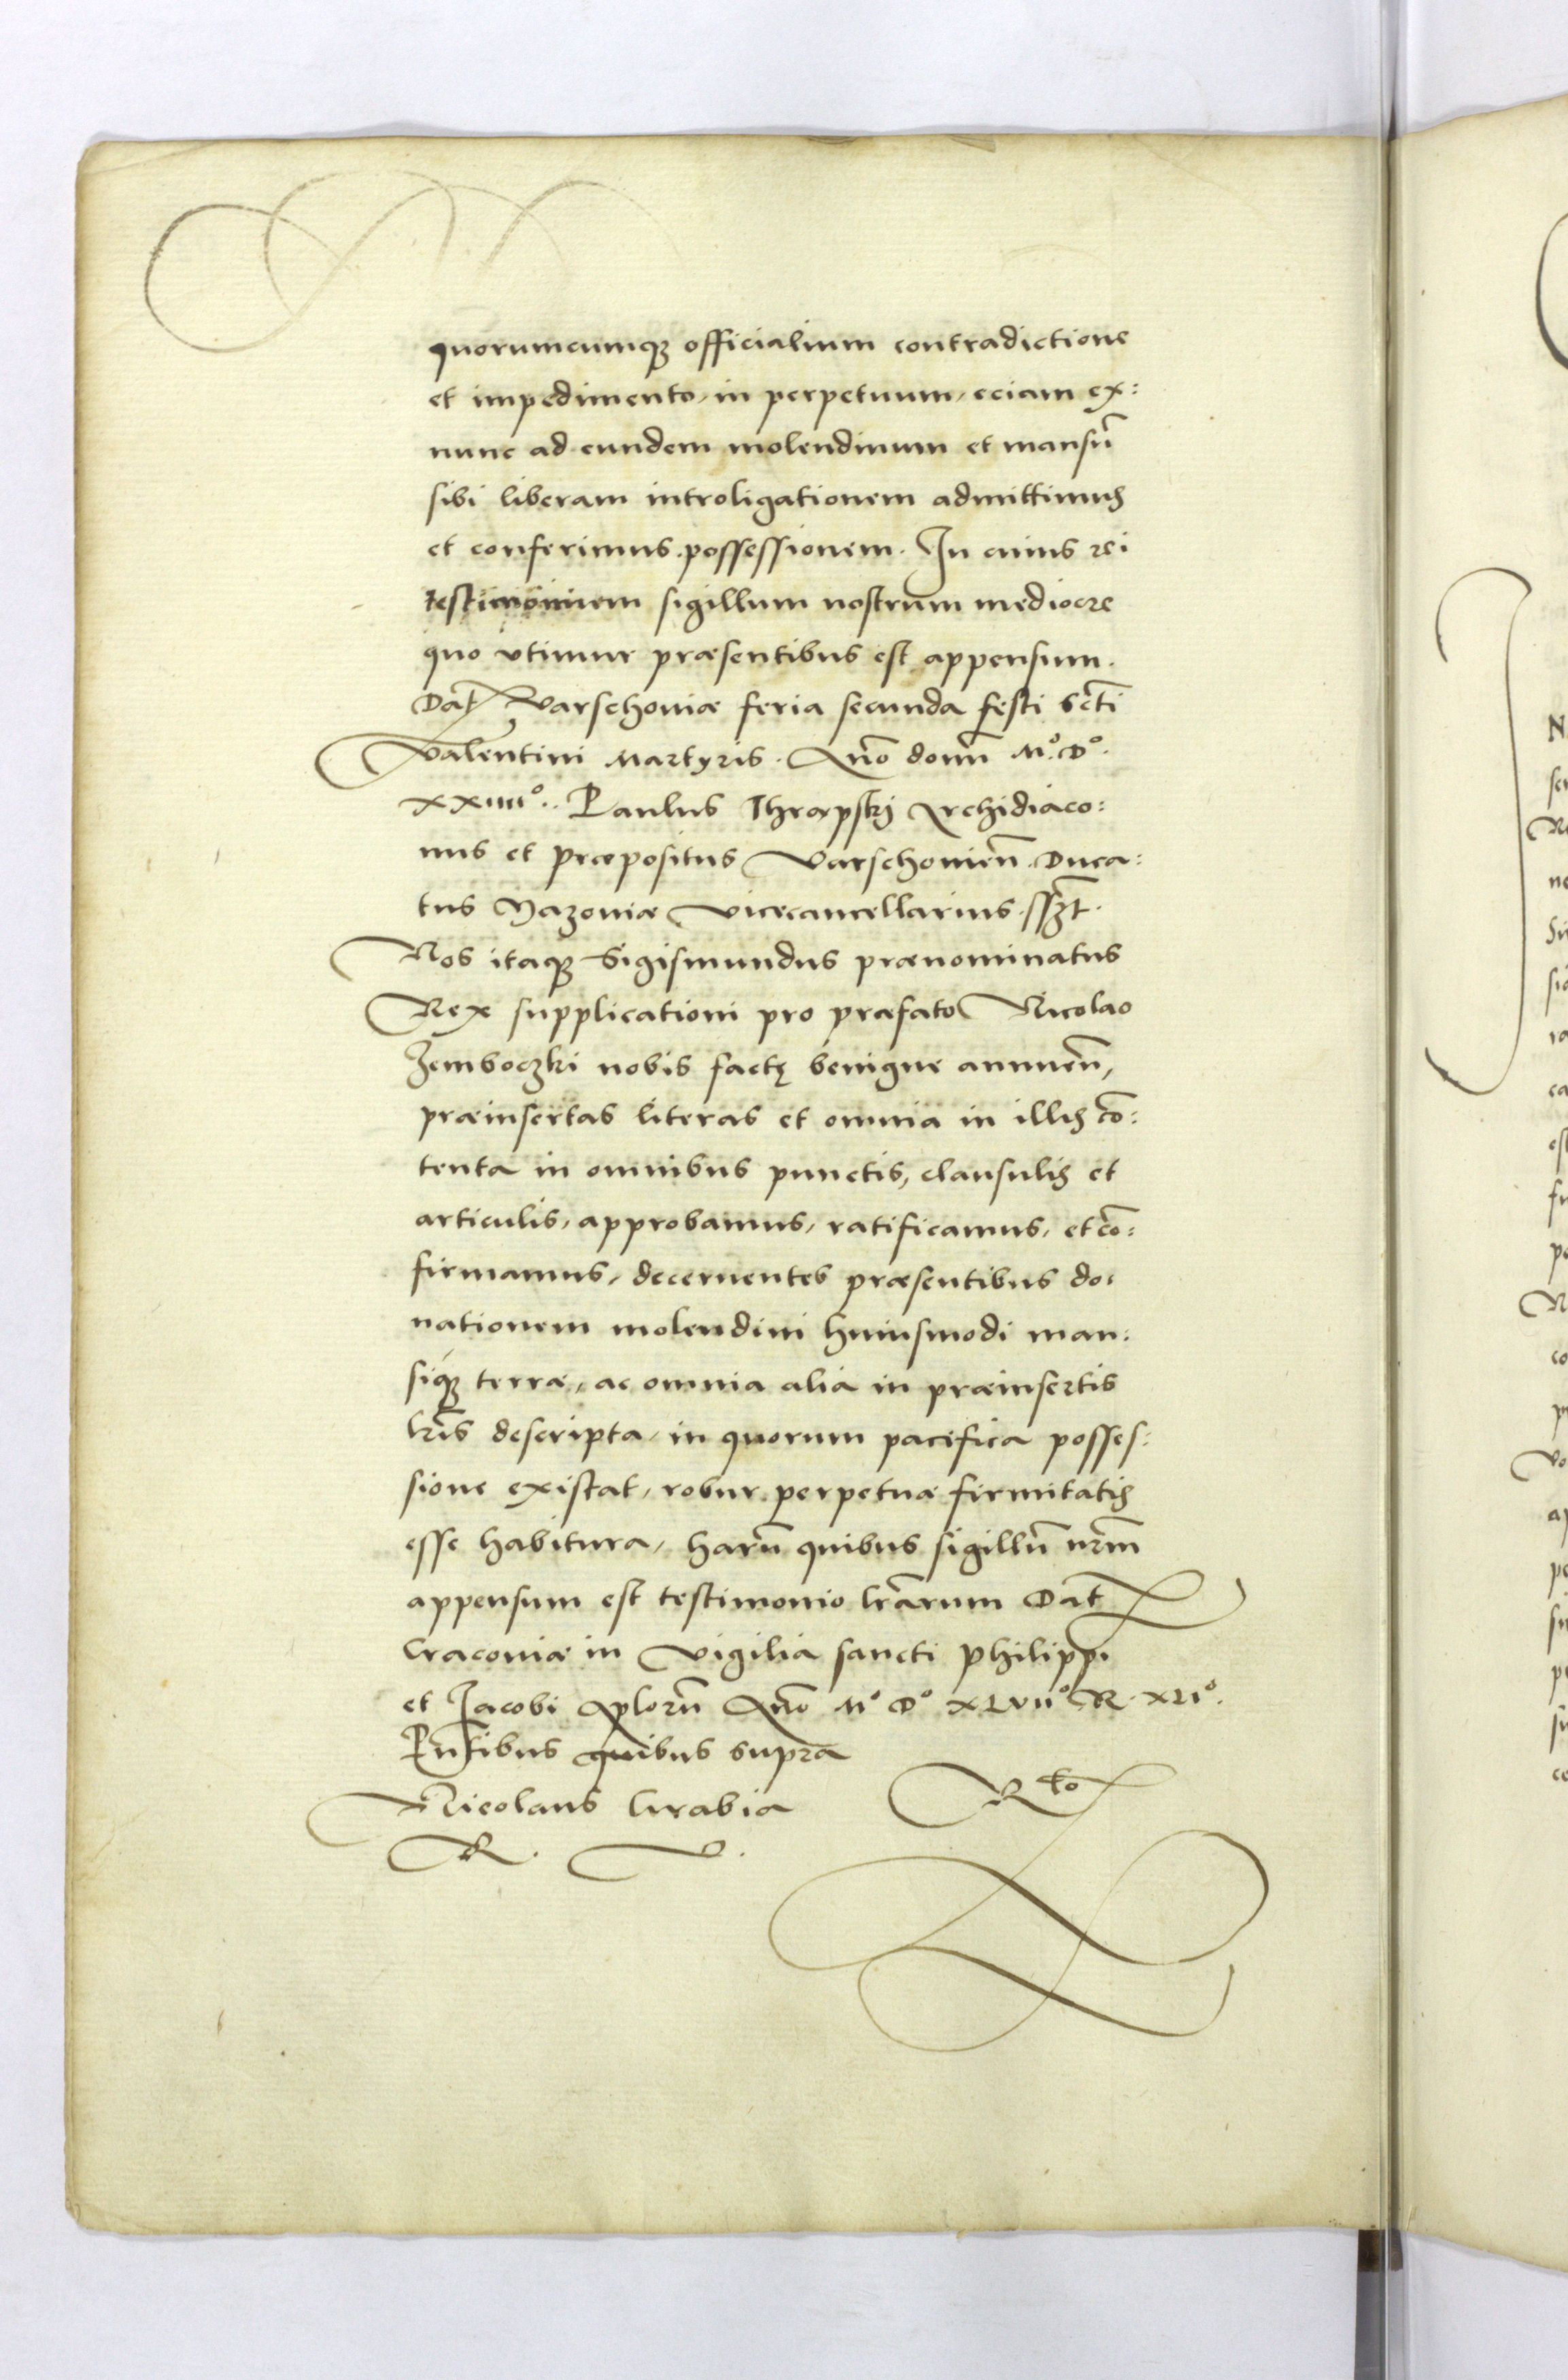 quorumcumq₃ officialium contradictione
et impedimento, in perpetuum, eciam ex:
nunc ad eundem molendinum et mansū
sibi liberam introligationem admittimus
et conferimus possessionem. In cuius rei
testimonium sigillum nostrum mediocre
quo vtimur præsentibus est appensum.
Dat Varschoviæ feria secunda festi scti
Valentini Martyris. Anno domi Mº. Dº.
XXIIIIº. Paulus Archidiaco:
nus et præpositus Varschovien̄. Duca:
tus Mazoviæ vicecancellarius. sszt.
Nos itaq₃ Sigismundus prænominatus
Rex supplicationi pro præfato Nicolao
Zemboczki nobis factę benigne annuen̄,
præinsertas literas et omnia in illis cō:
tenta in omnibus punctis, clausulis et
articulis, approbamus, ratificamus, et cō:
firmamus, decernentes præsentibus do:
nationem molendini huiusmodi man:
siq₃ terræ, ac omnia alia in præinsertis
lris descripta, in quorum pacifica posses:
sione existat, robur perpetuæ firmitatis
esse habitura, harū quibus sigillū nrm̄
appensum est testimonio lrarum Dat
Cracoviæ in vigilia sancti Philippi
et Jacobi Aplorū Anno Mº Dº XLVIIº R. XLIº.
Pntibus quibus supra
Nicolaus Grabia
R. V.
Rto